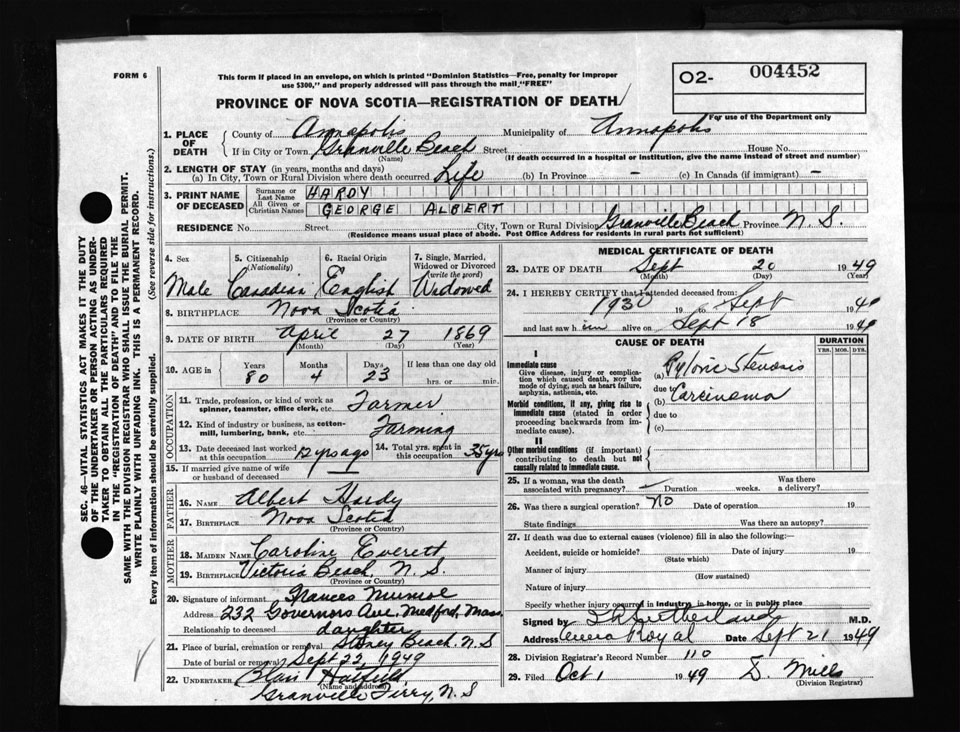 FORM 6
This form if placed in an envelope, on which is printed "Dominion Statistics—Free, penalty for improper
use $300," and properly addressed will pass through the mail "FREE"
O2- 004452
For use of the Department only
PROVINCE OF NOVA SCOTIA—REGISTRATION OF DEATH
1. PLACE OF DEATH { County of Annapolis Municipality of Annapolis
If in City or Town Granville Beach Street House No.
(Name) (If death occurred in a hospital or institution, give the name instead of street and number)
2. LENGTH OF STAY (in years, months and days)
(a) In City, Town or Rural Division where death occurred Life (b) In Province - (c) In Canada (if immigrant) -
3. PRINT NAME OF DECEASED { Surname or Last Name HARDY
All Given or Christian Names GEORGE ALBERT
RESIDENCE No. Street City, Town or Rural Division Granville Beach Province N. S.
(Residence means usual place of abode. Post Office Address for residents in rural parts not sufficient)
4. Sex 5. Citizenship (Nationality) 6. Racial Origin 7. Single, Married, Widowed or Divorced (write the word)
Male Canadian English Widowed
8. BIRTHPLACE Nova Scotia
(Province or Country)
9. DATE OF BIRTH April 27 1869
(Month) (Day) (Year)
10. AGE in { Years 80 Months 4 Days 23 If less than one day old
hrs. or min.
OCCUPATION
11. Trade, profession, or kind of work as
spinner, teamster, office clerk, etc. Farmer
12. Kind of industry or business, as cotton-
mill, lumbering, bank, etc. Farming
13. Date deceased last worked at this occupation 12 yrs ago 14. Total yrs. spent in this occupation 35 yrs
15. If married give name of wife
or husband of deceased —
FATHER
16. NAME Albert Hardy
17. BIRTHPLACE Nova Scotia
(Province or Country)
MOTHER
18. MAIDEN NAME Caroline Everett
19. BIRTHPLACE Victoria Beach, N. S.
(Province or Country)
20. Signature of informant Frances Munroe
Address 232 Governors Ave, Medford, Mass.
Relationship to deceased daughter
21. Place of burial, cremation or removal Stoney Beach, N. S
Date of burial or removal Sept 22, 1949
22. UNDERTAKER Blair Hatfield
(Name and address)
Granville Ferry, N. S
MEDICAL CERTIFICATE OF DEATH
23. DATE OF DEATH Sept 20 1949
(Month) (Day) (Year)
24. I HEREBY CERTIFY that I attended deceased from:
1930 19 to Sept 194
and last saw h im alive on Sept 18 194
CAUSE OF DEATH DURATION
YRS. MOS. DYS.
I
Immediate cause
Give disease, injury or complica-
tion which caused death, not the
mode of dying, such as heart failure,
asphyxia, asthenia, etc.
(a) Pyloric Stenosis
due to
Morbid conditions, if any, giving rise to
immediate cause (stated in order
proceeding backwards from im-
mediate cause).
(b) Carcinoma
due to
(c)
II
Other morbid conditions (if important)
contributing to death but not
causally related to immediate cause.
25. If a woman, was the death Was there
associated with pregnancy? Duration weeks. a delivery?
26. Was there a surgical operation? No Date of operation 19
State findings Was there an autopsy?
27. If death was due to external causes (violence) fill in also the following:
Accident, suicide or homicide? Date of injury 19
(State which)
Manner of injury
(How sustained)
Nature of injury
Specify whether injury occurred in industry, in home, or in public place
Signed by Sutherland M.D.
Address Royal Date Sept 21 1949
28. Division Registrar's Record Number 110
29. Filed Oct 1 1949 D. Mills
(Division Registrar)
SEC. 46—VITAL STATISTICS ACT MAKES IT THE DUTY
OF THE UNDERTAKER OR PERSON ACTING AS UNDER-
TAKER TO OBTAIN ALL THE PARTICULARS REQUIRED
IN THE "REGISTRATION OF DEATH" AND TO FILE THE
SAME WITH THE DIVISION REGISTRAR WHO SHALL ISSUE THE BURIAL PERMIT.
WRITE PLAINLY WITH UNFADING INK. THIS IS A PERMANENT RECORD.
Every item of information should be carefully supplied. (See reverse side for instructions.)